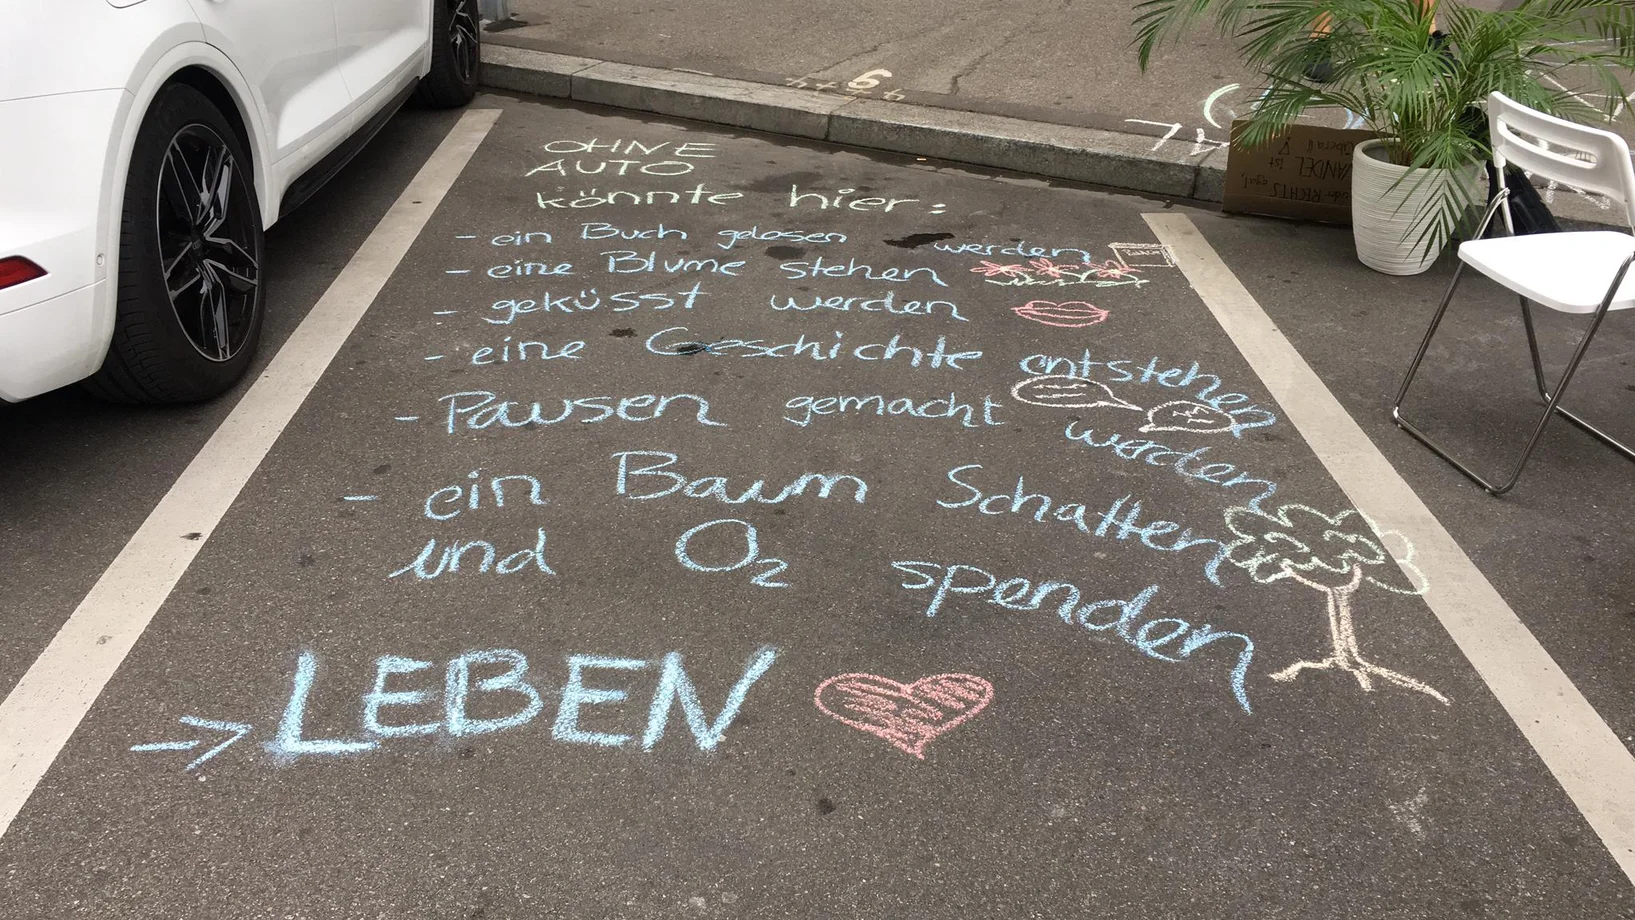 OHNE
AUTO
könnte hier:
- ein Buch gelesen werden
- eine Blume stehen
- geküsst werden
- eine Geschichte entstehen
- Pausen gemacht werden
- ein Baum Schatten
und O₂ spenden
=> LEBEN
RECHTS egal,
WANDEL ist